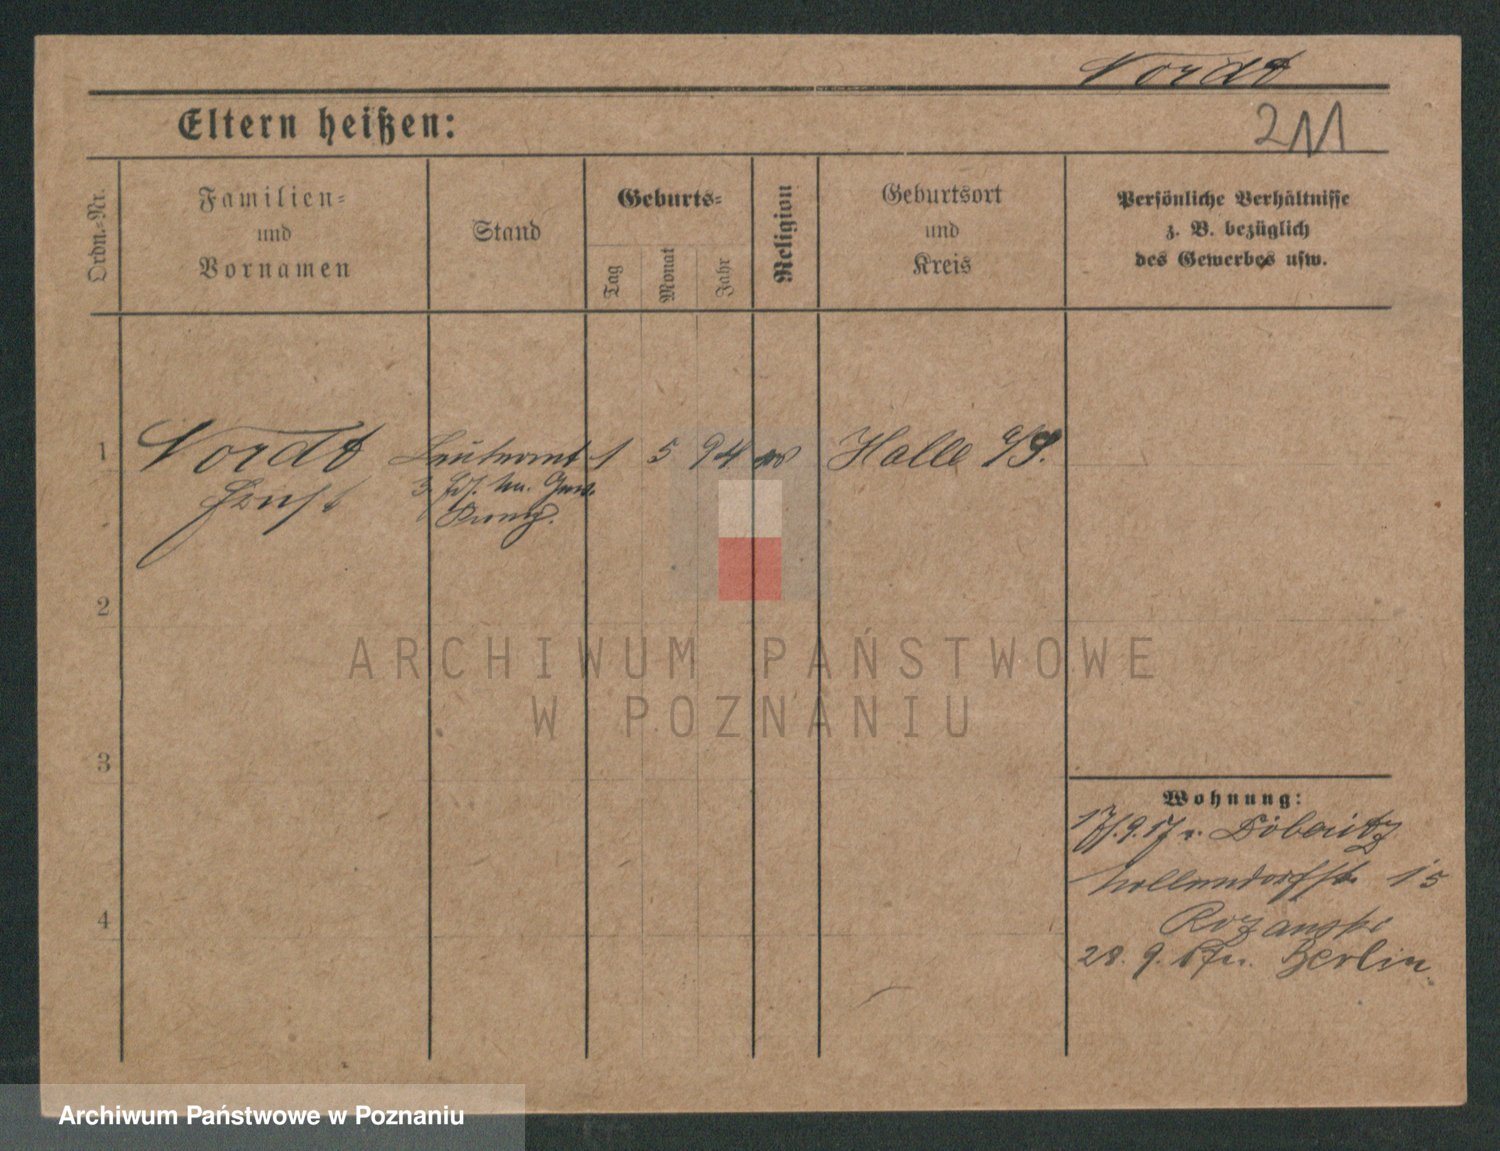 Nordt
Eltern heißen:
211
Ordn.-Nr.
Familien-
und
Vornamen
Stand
Geburts-
Tag
Monat
Jahr
Religion
Geburtsort
und
Kreis
Persönliche Verhältnisse
z. B. bezüglich
des Gewerbes usw.
1
Nordt
Leutnant
1 5 94
Halle a/S.
Ernst
2
ARCHIWUM PAŃSTWOWE
W POZNANIU
3
Wohnung:
17.9.17 v. Döberitz
15
4
28. 9. 17 n. Berlin
Archiwum Państwowe w Poznaniu